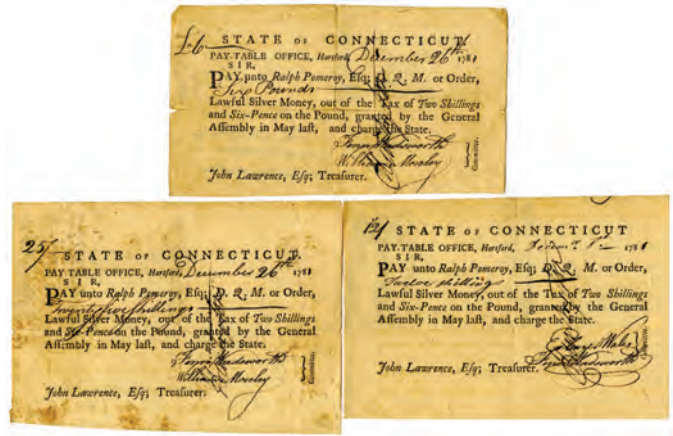 £6 STATE OF CONNECTICUT.
PAY-TABLE OFFICE, Hartford, December 26th 1781
SIR,
PAY unto Ralph Pomeroy, Esq; D. Q. M. or Order,
Six Pounds
Lawful Silver Money, out of the Tax of Two Shillings
and Six-Pence on the Pound, granted by the General
Assembly in May last, and charge the State.
Fenn Wadsworth
William Moseley
Committee.
John Lawrence, Esq; Treasurer.
25/ STATE OF CONNECTICUT.
PAY TABLE OFFICE, Hartford, December 26th 1781
SIR,
PAY unto Ralph Pomeroy, Esq; D. Q. M. or Order,
Twenty five shillings
Lawful Silver Money, out of the Tax of Two Shillings
and Six-Pence on the Pound, granted by the General
Assembly in May last, and charge the State.
Fenn Wadsworth
William Moseley
Committee.
John Lawrence, Esq; Treasurer.
12/ STATE OF CONNECTICUT
PAY-TABLE OFFICE, Hartford, 1781
SIR,
PAY unto Ralph Pomeroy, Esq; D. Q. M. or Order,
Twelve shillings
Lawful Silver Money, out of the Tax of Two Shillings
and Six-Pence on the Pound, granted by the General
Assembly in May last, and charge the State.
Wales
Fenn Wadsworth
Committee.
John Lawrence, Esq; Treasurer.